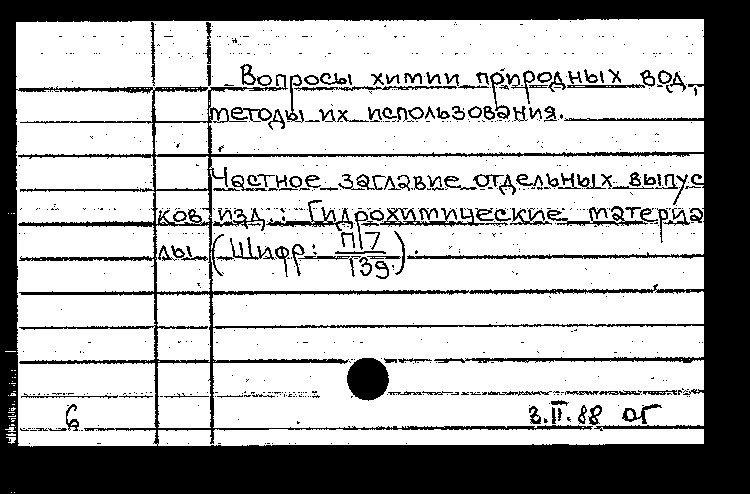 Вопросы химии природных вод,
методы их использования.
Частное заглавие отдельных выпус
ков изд.: Гидрохимические материа
лы (Шифр: П17/139).
6 3.II.88 ОГ